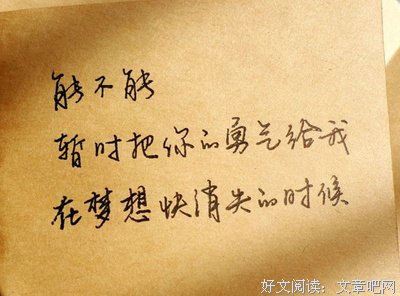 能不能
暂时把你的勇气给我
在梦想快消失的时候
好文阅读：文章吧网